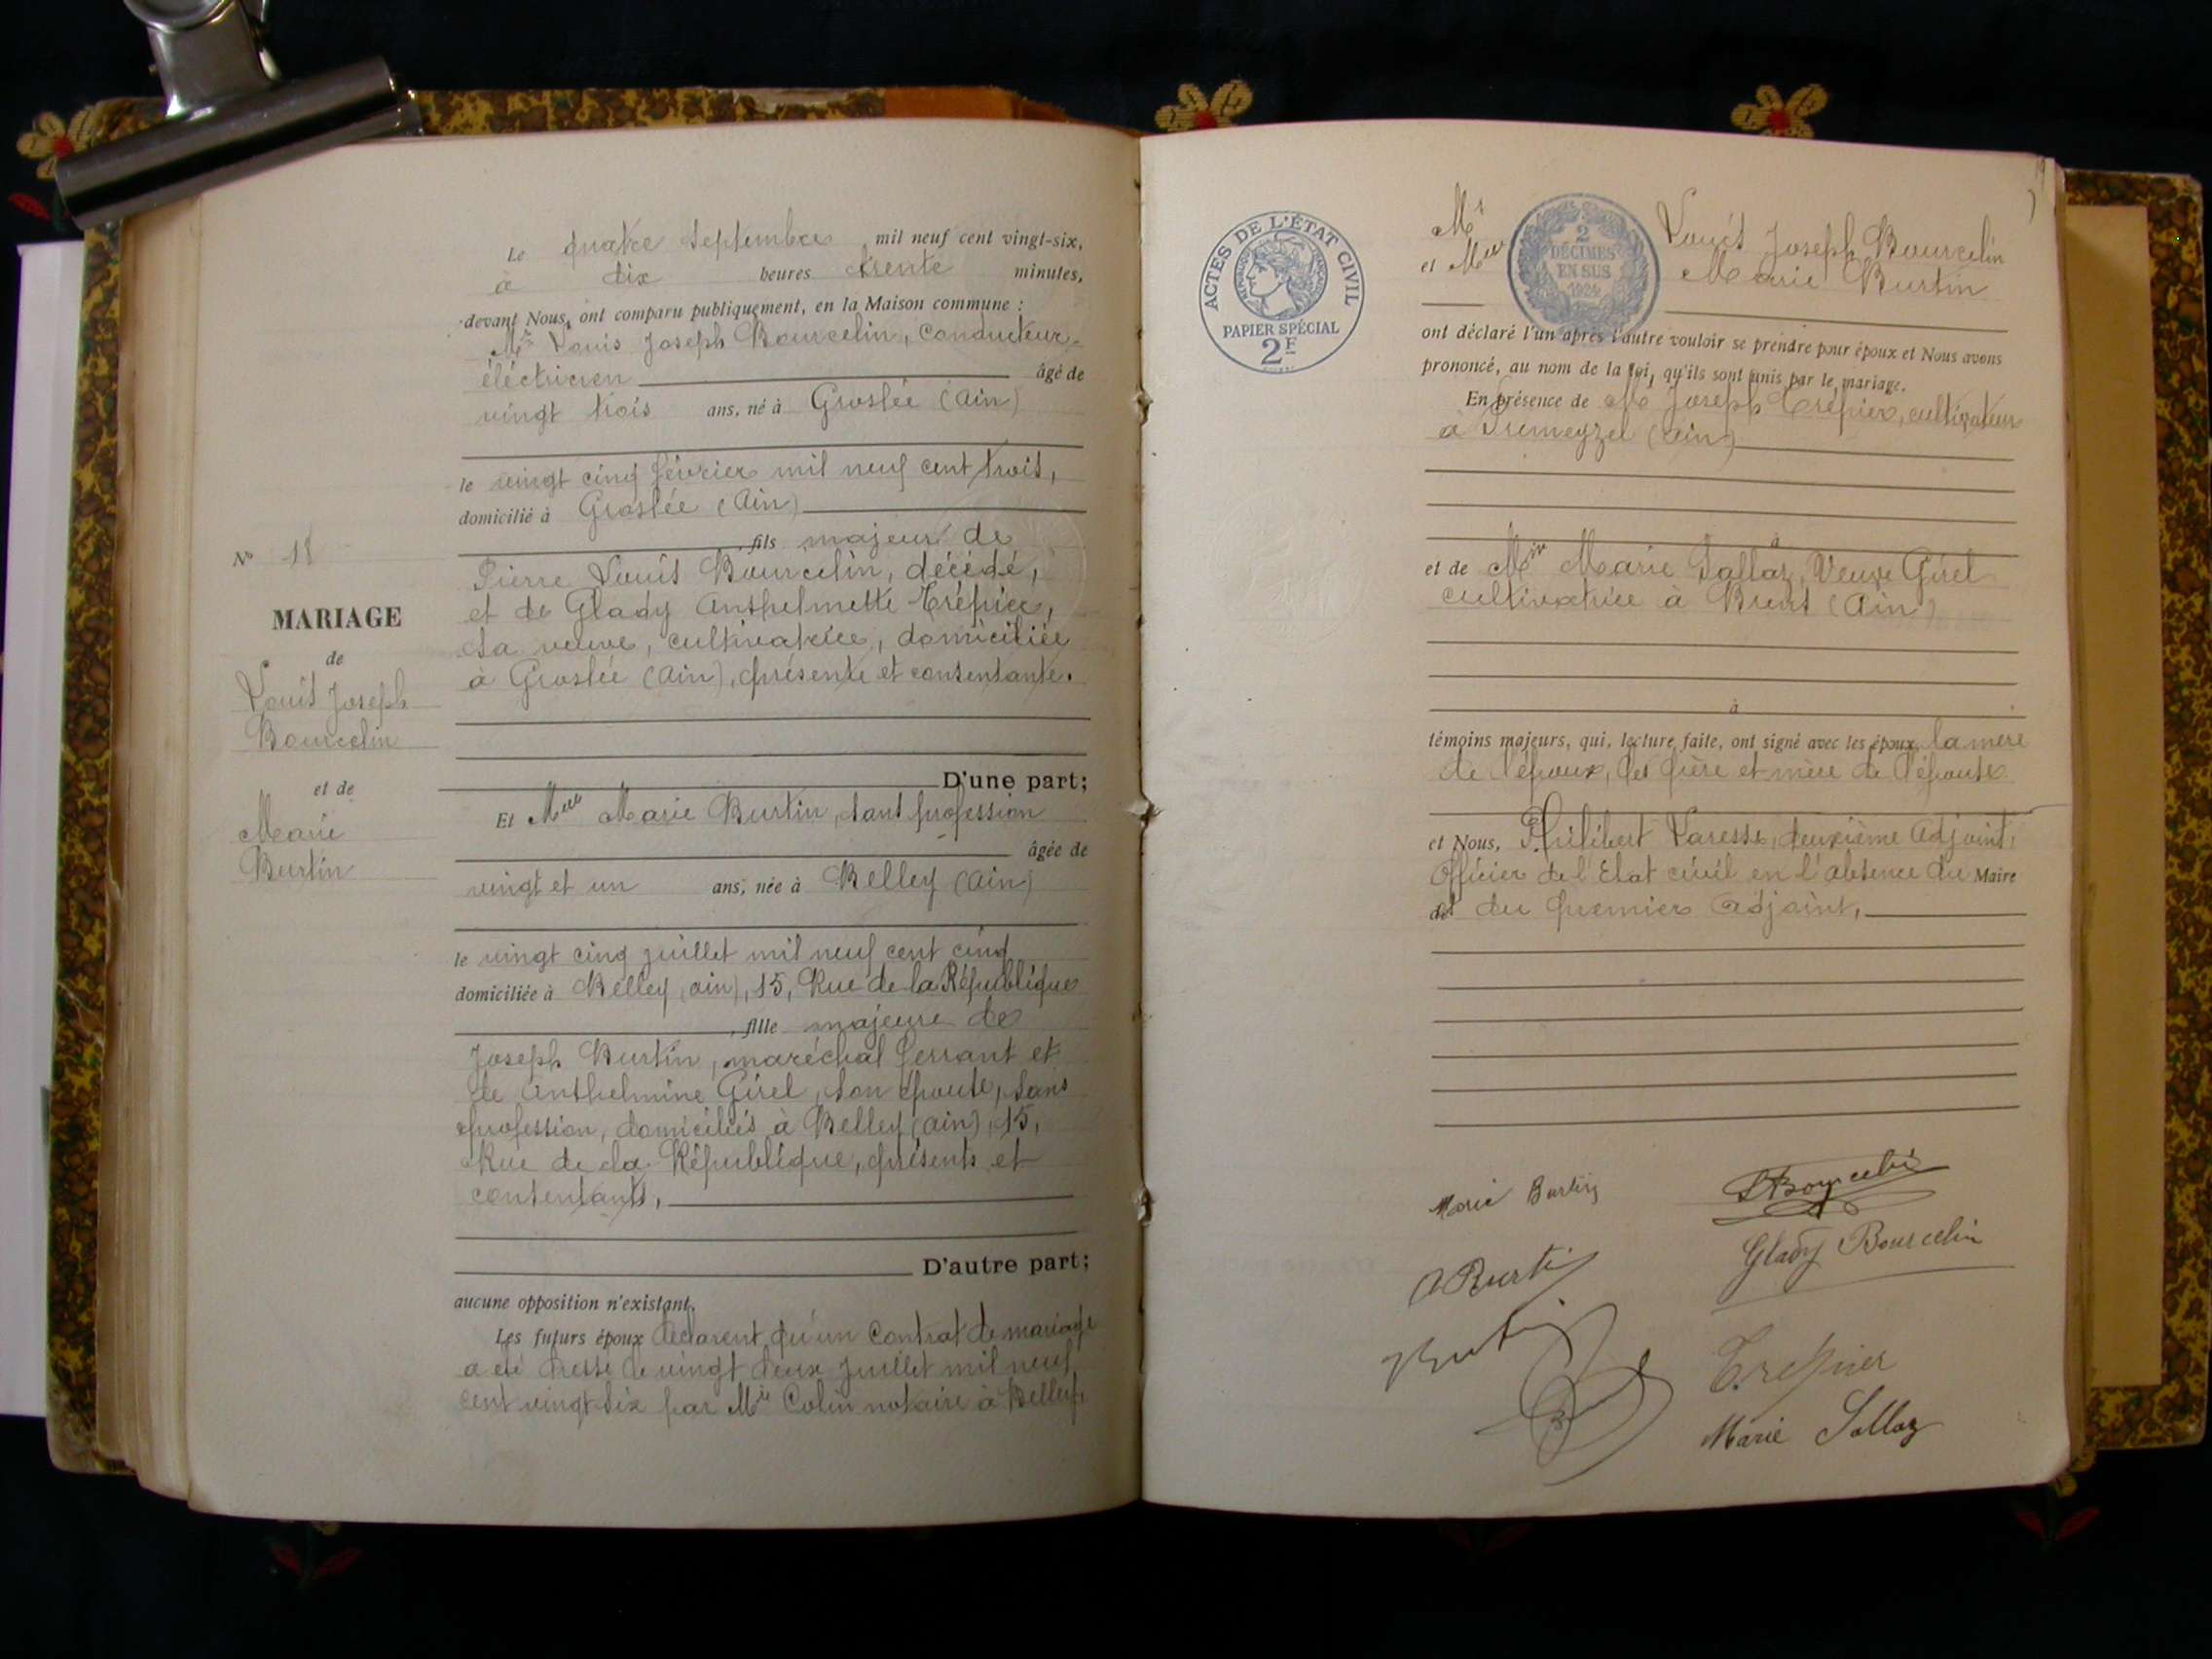 Le quatre Septembre mil neuf cent vingt-six,
à dix heures trente minutes,
devant Nous, ont comparu publiquement, en la Maison commune :
Mr Louis Joseph Bourcelin, Conducteur-
électricien âgé de
vingt trois ans, né à Groslée (Ain)
le vingt cinq février mil neuf cent trois,
domicilié à Groslée (Ain)
fils majeur de
Pierre Louis Bourcelin, décédé,
et de Glady Anthelmette Trépier,
sa veuve, cultivatrice, domiciliée
à Groslée (Ain), présente et consentante.
D'une part;
Et Melle Marie Burtin, sans profession
âgée de
vingt et un ans, née à Belley (Ain)
le vingt cinq juillet mil neuf cent cinq
domiciliée à Belley (ain), 15, Rue de la République
, fille majeure de
Joseph Burtin, maréchal ferrant et
de Anthelmine Girel, son épouse, sans
profession, domiciliés à Belley (ain), 15,
Rue de la République, présents et
consentants,
D'autre part;
aucune opposition n'existant.
Les futurs époux déclarent qu'un Contrat de mariage
a été dressé le vingt deux juillet mil neuf
cent vingt six par Me Colin notaire à Belley.
No 18
MARIAGE
de
Louis Joseph
Bourcelin
et de
Marie
Burtin
ACTES DE L'ÉTAT CIVIL
RÉPUBLIQUE FRANÇAISE
PAPIER SPÉCIAL
2F
2
DÉCIMES
EN SUS
1924
Mr Louis Joseph Bourcelin
et Melle Marie Burtin
ont déclaré l'un après l'autre vouloir se prendre pour époux et Nous avons
prononcé, au nom de la loi, qu'ils sont unis par le mariage.
En présence de M Joseph Trépier, cultivateur
à Prémeyzel (Ain)
à
et de Me Marie Sallaz, Veuve Girel
cultivatrice à Brens (Ain)
à
témoins majeurs, qui, lecture faite, ont signé avec les époux, la mère
de l'époux, les père et mère de l'épouse
et Nous, Philibert Varesse, deuxième Adjoint,
Officier de l'Etat civil en l'absence du Maire
et du premier Adjoint,
Marie Burtin
LBourcelin
Glady Bourcelin
A Burtin
Burtin
Trépier
Marie Sallaz